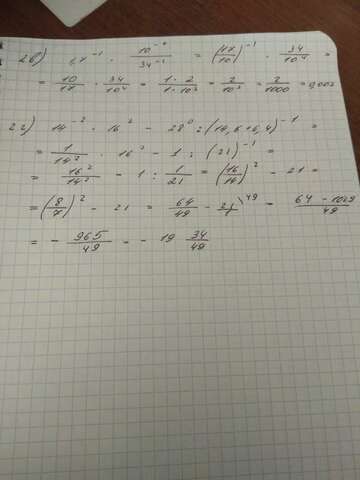 2в) 1,7⁻¹ · 10⁻⁴/34⁻¹ = (17/10)⁻¹ · 34/10⁴ =
= 10/17 · 34/10⁴ = 1 · 2/1 · 10³ = 2/10³ = 2/1000 = 0,002
2г) 14⁻² · 16² − 28⁰ : (14,6 + 6,4)⁻¹ =
= 1/14² · 16² − 1 : (21)⁻¹ =
= 16²/14² − 1 : 1/21 = (16/14)² − 21 =
= (8/7)² − 21 = 64/49 − 21\⁴⁹ = 64 − 1029/49
= − 965/49 = − 19 34/49